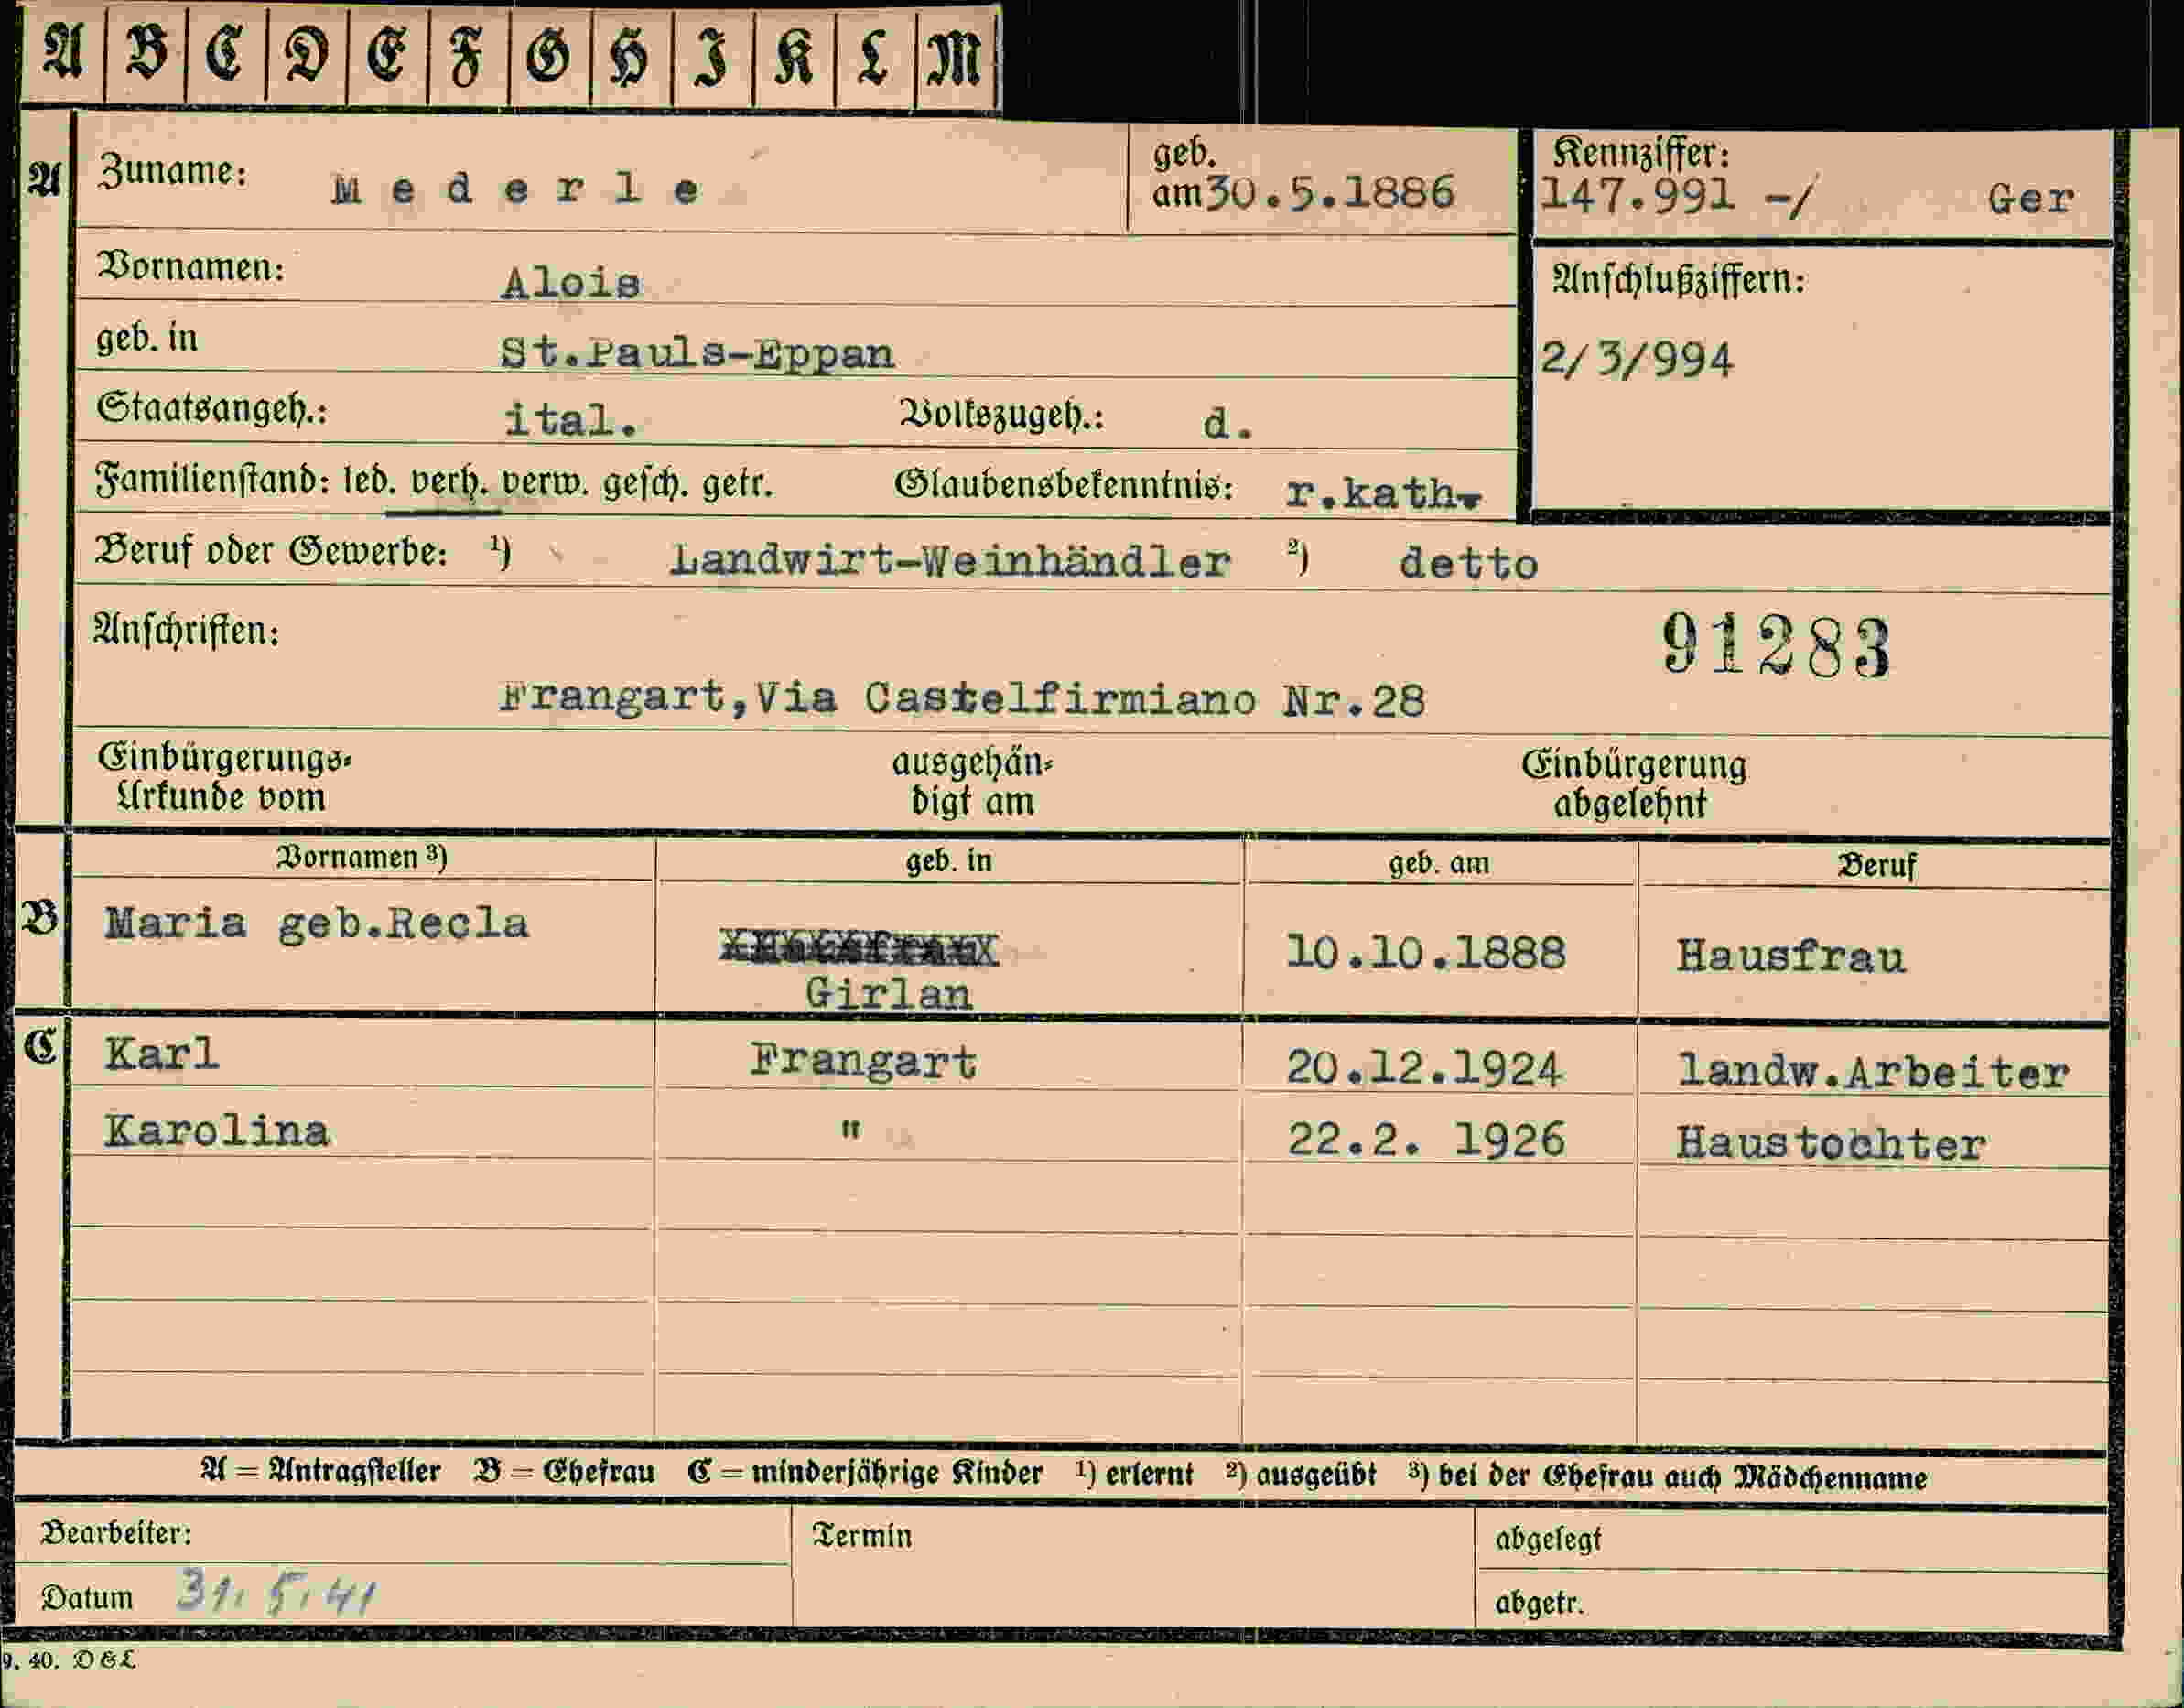 A B C D E F G H I K L M
A Zuname: Mederle geb. am 30.5.1886 Kennziffer: 147.991 -/ Ger
Vornamen: Alois Anschlußziffern:
geb. in St.Pauls-Eppan 2/3/994
Staatsangeh.: ital. Volkszugeh.: d.
Familienstand: led. verh. verw. gesch. getr. Glaubensbekenntnis: r.kath.
Beruf oder Gewerbe: ¹) Landwirt-Weinhändler ²) detto
Anschriften: 91283
Frangart,Via Castelfirmiano Nr.28
Einbürgerungs- ausgehän- Einbürgerung
Urkunde vom digt am abgelehnt
Vornamen ³) geb. in geb. am Beruf
B Maria geb.Recla 10.10.1888 Hausfrau
Girlan
C Karl Frangart 20.12.1924 landw.Arbeiter
Karolina " 22.2. 1926 Haustochter
A = Antragsteller B = Ehefrau C = minderjährige Kinder ¹) erlernt ²) ausgeübt ³) bei der Ehefrau auch Mädchenname
Bearbeiter: Termin abgelegt
Datum 31.5.41 abgetr.
9. 40. D&L